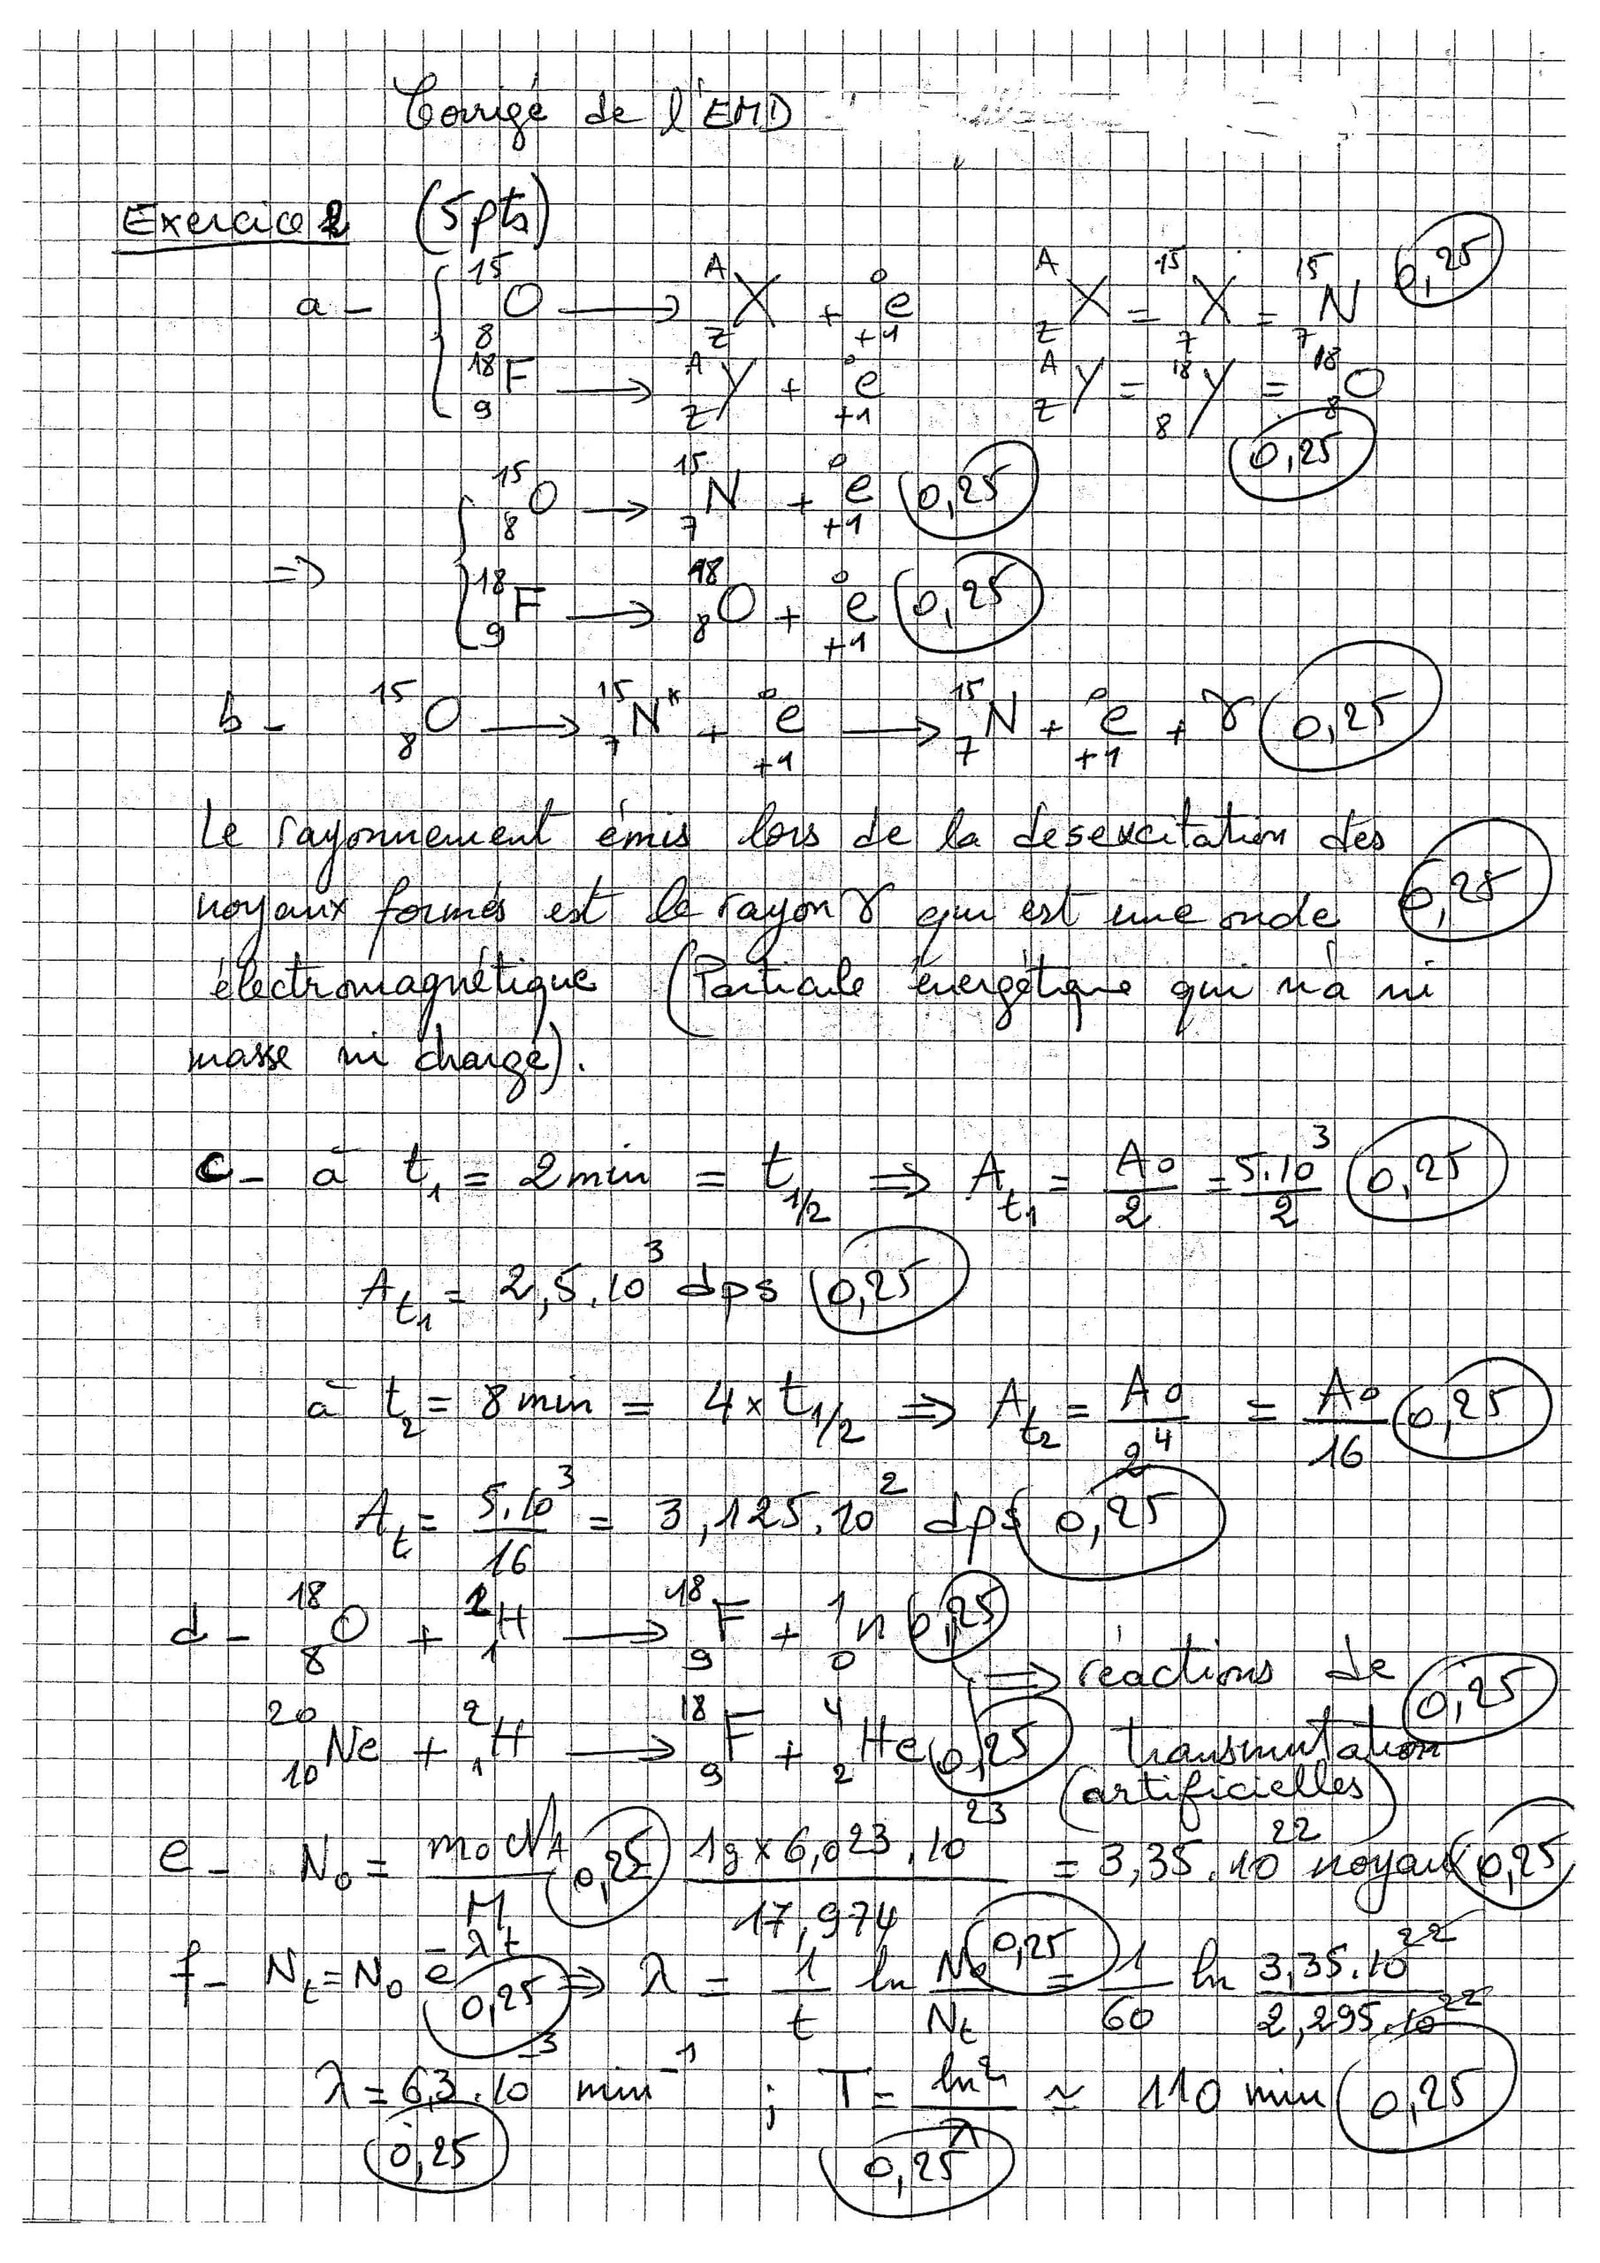 Corrigé de l'EMD
Exercice 2 (5pts)
a - { ¹⁵₈O ⟶ ᴬ_Z X + ⁰₊₁e    ᴬ_Z X = ¹⁵₇X = ¹⁵₇N (0,25)
¹⁸₉F ⟶ ᴬ_Z Y + ⁰₊₁e    ᴬ_Z Y = ¹⁸₈Y = ¹⁸₈O (0,25)
⇒ { ¹⁵₈O ⟶ ¹⁵₇N + ⁰₊₁e (0,25)
¹⁸₉F ⟶ ¹⁸₈O + ⁰₊₁e (0,25)
b - ¹⁵₈O ⟶ ¹⁵₇N* + ⁰₊₁e ⟶ ¹⁵₇N + ⁰₊₁e + γ (0,25)
Le rayonnement émis lors de la desexcitation des
noyaux formés est le rayon γ qui est une onde (0,25)
électromagnétique (Particule énergétique qui n'a ni
masse ni charge).
c - à t₁ = 2 min = t₁/₂ ⇒ A_t₁ = A₀/2 = 5.10³/2 (0,25)
A_t₁ = 2,5.10³ dps (0,25)
à t₂ = 8 min = 4 × t₁/₂ ⇒ A_t₂ = A₀/2⁴ = A₀/16 (0,25)
A_t = 5.10³/16 = 3,125.10² dps (0,25)
d - ¹⁸₈O + ¹₁H ⟶ ¹⁸₉F + ¹₀n (0,25)
⇒ réactions de (0,25)
²⁰₁₀Ne + ²₁H ⟶ ¹⁸₉F + ⁴₂He (0,25) transmutation
(artificielles)
e - N₀ = m₀ N_A/M (0,25) = 1g × 6,023.10²³/17,974 = 3,35.10²² noyaux (0,25)
f - N_t = N₀ e^-λt (0,25) ⇒ λ = 1/t ln N₀/N_t (0,25) = 1/60 ln 3,35.10²²/2,295.10²²
λ = 6,3.10⁻³ min⁻¹ (0,25) ; T = ln2/λ (0,25) ≃ 110 min (0,25)